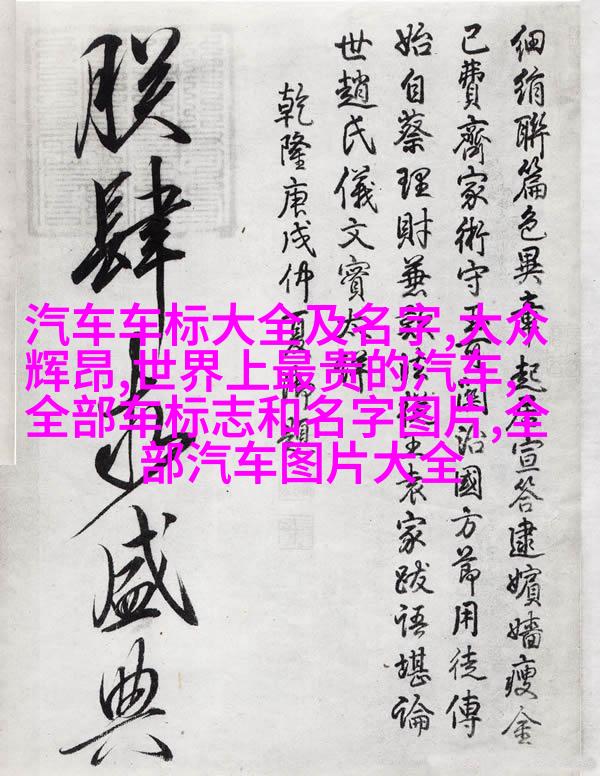 汽车车标大全及名字,大众
辉昂,世界上最贵的汽车,
全部车标志和名字图片,全
部汽车图片大全
細绢聯篇色異章起居宣答逮嬪嬙瘦金
已費齊家術守治國方節用徒傳
始自蔡理財兼袁家跋語堪論
世趙氏儀文賓
乾隆庚戌仲夏御題
朕肆盛典